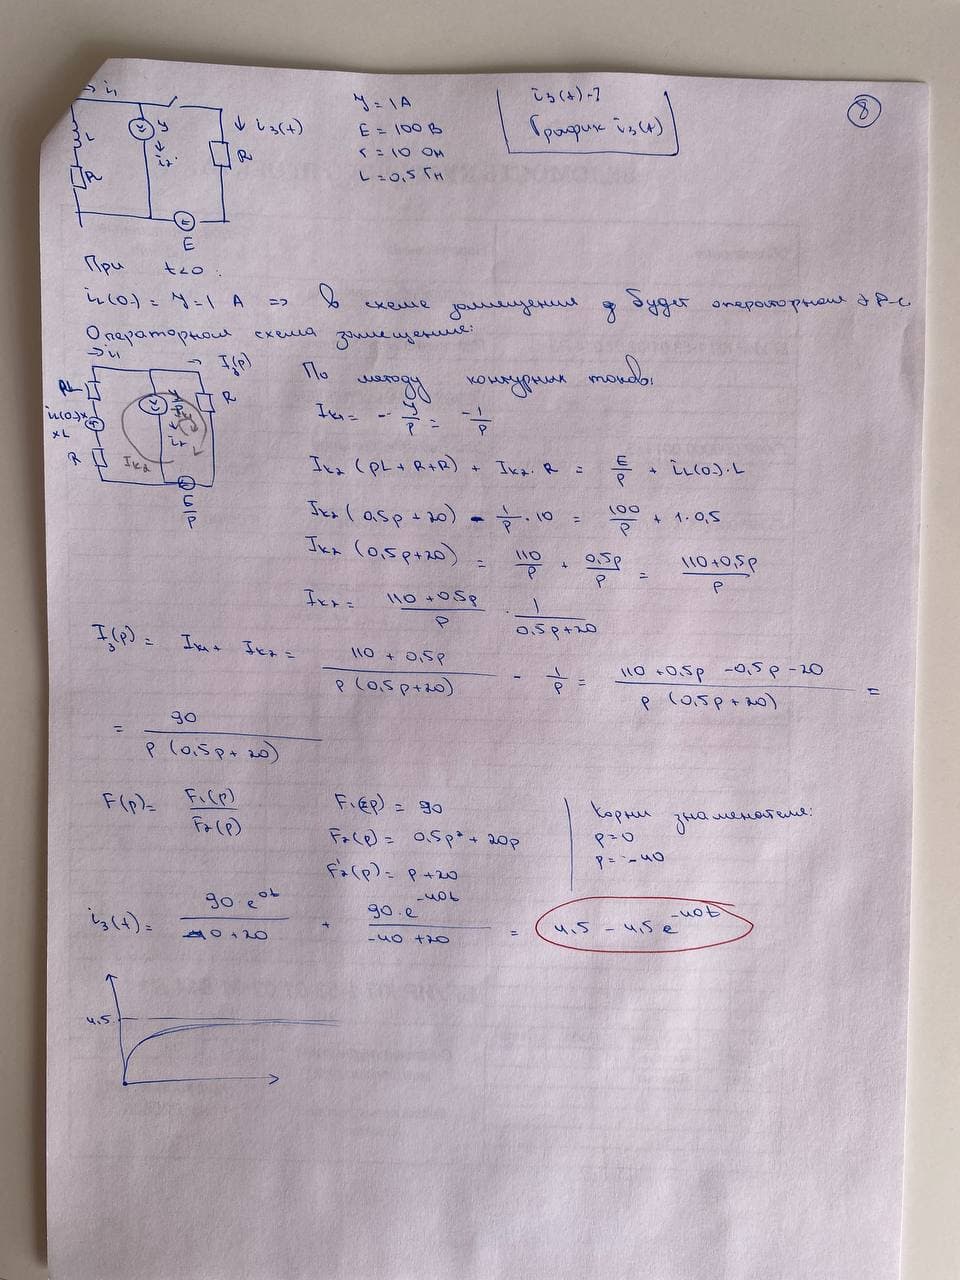 8
i₁
L
R
J
i₂
i₃(t)
R
E
J = 1 A
E = 100 В
r = 10 Ом
L = 0,5 Гн
i₃(t) - ?
График i₃(t)
При t<0:
i_L(0-) = J = 1 A => В схеме замещения будет операторная
Операторная схема замещения:
i₁
I₃(p)
i_L(0-)×
×L
R
I_k2
i₂
R
E/p
По методу контурных токов:
I_k1 = - J/p = -1/p
I_k2 (pL + R + R) + I_k2 · R = E/p + i_L(0-) · L
I_k2 (0,5p + 20) - 1/p · 10 = 100/p + 1 · 0,5
I_k2 (0,5p + 20) = 110/p + 0,5p/p = 110 + 0,5p/p
I_k2 = 110 + 0,5p/p · 1/0,5p + 20
I₃(p) = I_k1 + I_k2 = 110 + 0,5p/p (0,5p + 20) - 1/p = 110 + 0,5p - 0,5p - 20/p (0,5p + 20) =
= 90/p (0,5p + 20)
F(p) = F₁(p)/F₂(p)
F₁(p) = 90
F₂(p) = 0,5p² + 20p
F₂'(p) = p + 20
Корни знаменателя:
p = 0
p = -40
i₃(t) = 90 · e^0t/0 + 20 + 90 · e^-40t/-40 + 20 = 4,5 - 4,5 e^-40t
4,5